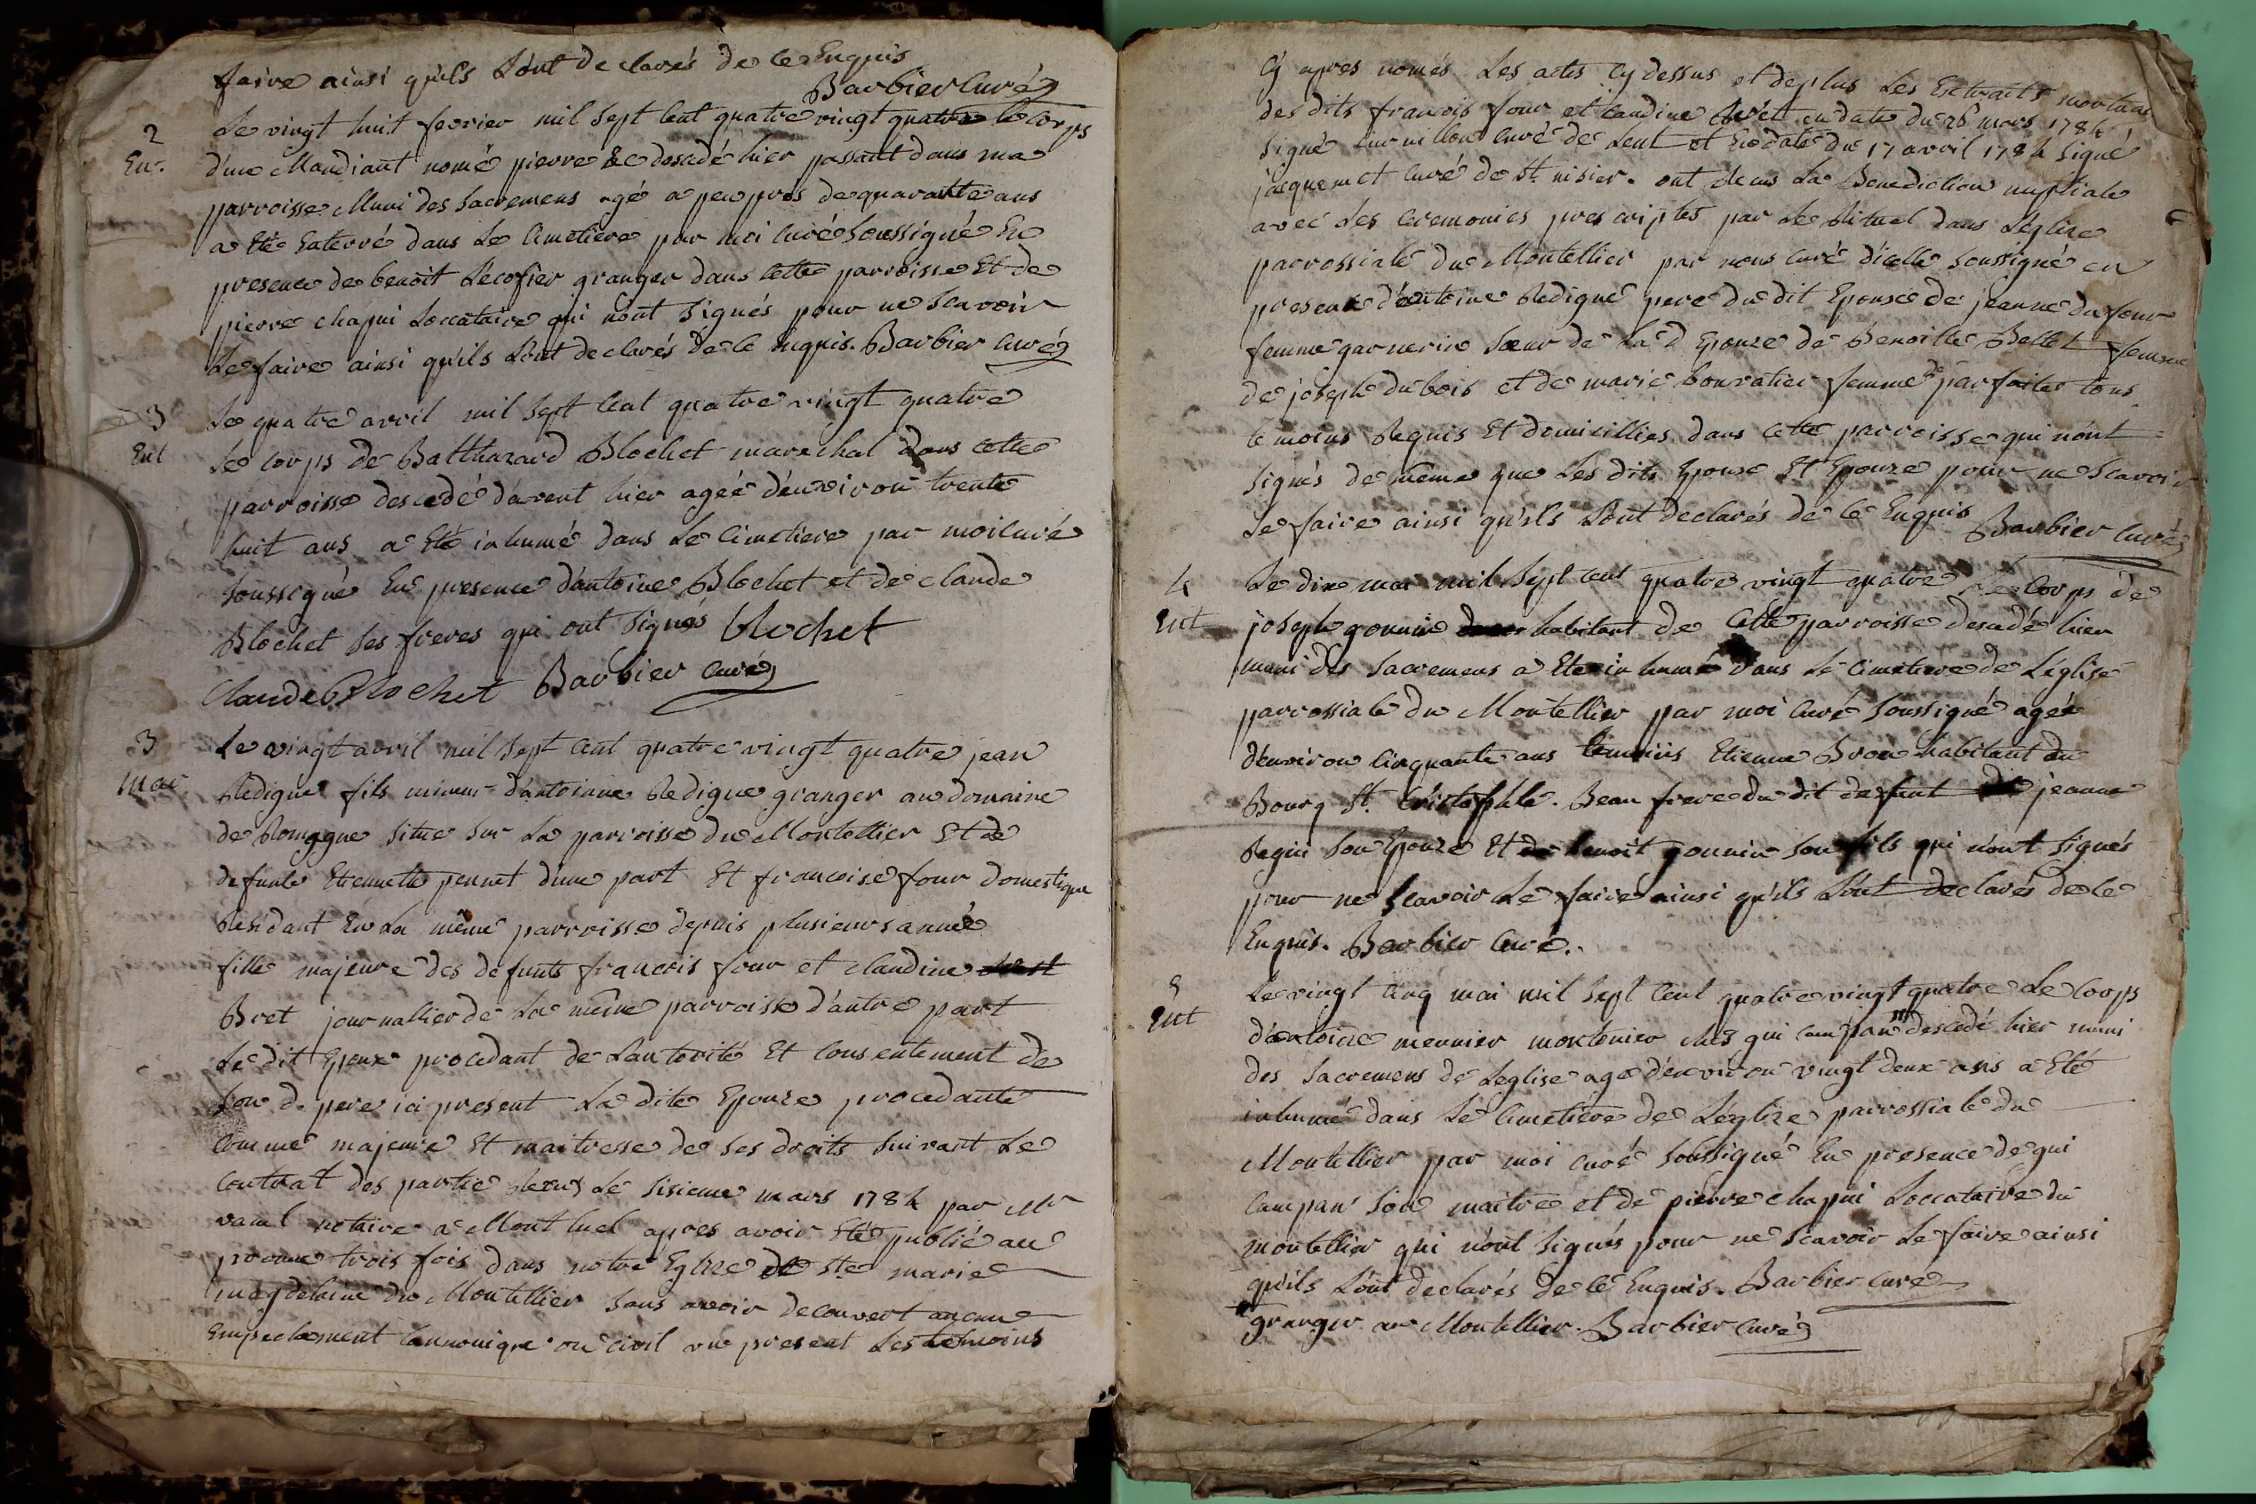 faire ainsi qu'ils L'ont declarés de ce Enquis
Barbier Curé
2
En.
Le vingt huit fevrier mil sept cent quatre vingt quatre le corps
d'un Mandiant nomé pierre decedé hier passant dans ma
parroisse Muni des Sacremens agé a peu près de quarante ans
a Eté Enterré dans Le Cimetière par moi Curé Soussigné En
presence de benoit Lecofier granger dans cette parroisse Et de
pierre chapui Loccataire qui n'ont signés pour ne Scavoir
Le faire ainsi qu'ils L'ont declarés de ce Enquis. Barbier Curé
3
Ent
Le quatre avril mil sept cent quatre vingt quatre
Le corps de Balthazard Blochet marechal dans cette
parroisse descedé d'avent hier ageé d'environ trente
huit ans a Eté inhumé dans Le Cimetiere par moi Curé
Soussigné En presence d'antoine Blochet et de claude
Blochet Ses freres qui ont Signés blochet
Claude Blochet Barbier Curé
3
Mar.
Le vingt avril mil sept cent quatre vingt quatre jean
Redigue fils mineur d'antoinne Redigue granger au domaine
de Romagne situe sur La parroisse du Montellier et de
defunte Etiennette pennet d'une part Et francoise four domestique
Residant En La même parroisse depuis plusieurs année
fille majeure des defunts francois four et claudine
Bret journallier de La même parroisse d'autre part
Le dit Epoux procedant de L'autorité Et Consentement de
Son d. pere ici present La dite Epouze procedante
Comme majeure Et maitresse de ses droits suivant Le
Contrat des partie Recus Le sisieme mars 1784 par Mr
notaire a Montluel apres avoir Eté publié au
prosne trois fois dans notre Eglize de Ste marie
magdelaine du Montellier Sans avoir decouvert aucun
Empechement Cannonique ou civil vu present Les temoins
Cy apres només Les actes Cy dessus et deplus Les Extraits mortuaire
des dits francois four et Claudine Bret en date du 26 mars 1784
signé curé de Lent et En date du 17 avril 1784 signé
jacquemet curé de St. nisier. ont Recus La Benediction nuptiale
avec Les ceremonies prescriptes par Le Rituel dans L'eglize
parrossiale du Montellier par nous curé d'icelle Soussigné en
presence d'antoine Redigue pere du dit Epouse de jeanne du four
femme garnerin Sœur de La d Epouze de Benoitte Bellet femme
de joseph dubois et de marie bouvatier femme parfaite tous
temoins Requis Et domicilliés dans cette parroisse qui n'ont
Signés de même que Les dits Epoux Et Epouze pour ne Scavoir
Le faire ainsi qu'ils L'ont declarés de ce Enquis Barbier Curé
4
Ent
Le dix mai mil Sept cent quatre vingt quatre Le Corps de
joseph gonnin habitant de cette parroisse decedé hier
muni des Sacremens a Ete inhumé dans Le Cimetiere de L'eglise
parrossiale du Montellier par moi Curé Soussigné ageé
d'environ Cinquante ans temoins Etienne Bron habitant du
Bourg St. Cristophle. Beau frere du dit defunt jeanne
Regni Son Epouze Et benoit gonnin Son fils qui n'ont Signés
pour ne Scavoir Le faire ainsi qu'ils L'ont declarés de ce
Enquis. Barbier Curé.
5
Ent
Le vingt cinq mai mil Sept cent quatre vingt quatre Le Corps
d'antoine meunier moutonier chés gui campan descedé hier muni
des Sacremens de L'eglise agé d'environ vingt deux ans a Eté
inhumé dans Le Cimetiere de L'eglize parrossiale du
Montellier par moi curé Soussigné En presence de gui
Campan Son maitre et de pierre chapui Loccataire du
montellier qui n'ont Signés pour ne Scavoir Le faire ainsi
qu'ils L'ont declarés de ce Enquis. Barbier Curé
granger au Montellier. Barbier Curé